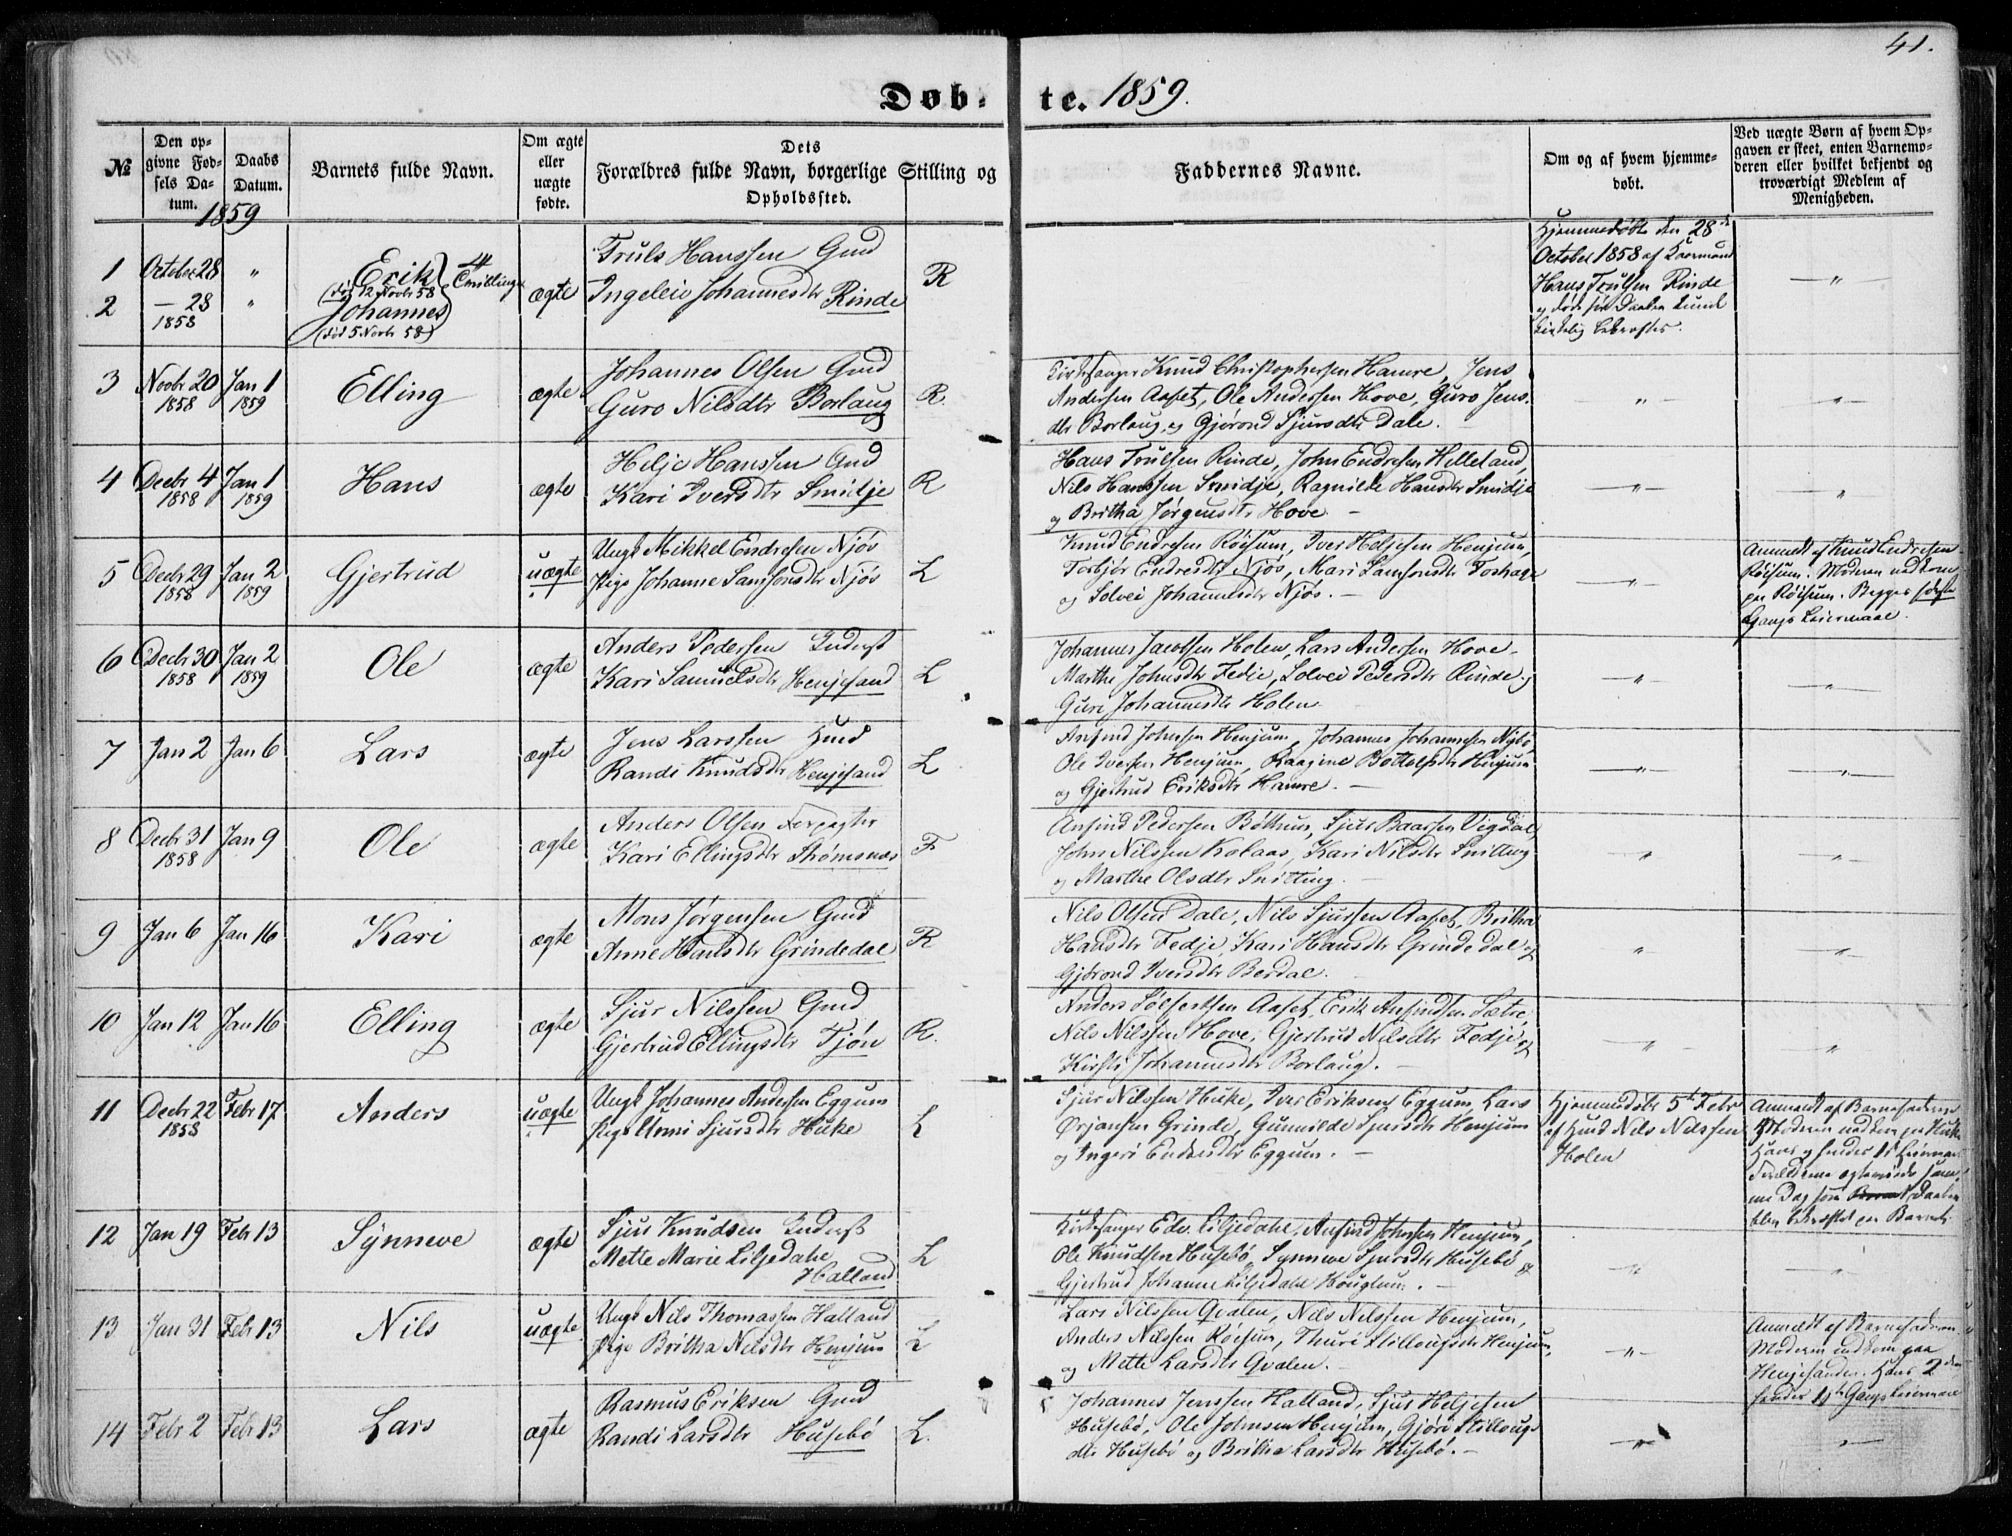 41.
Døb- te. 1859.
№
Den op-
givne Fød-
sels Da-
tum.
Daabs
Datum.
Barnets fulde Navn.
Om ægte
eller
uægte
fødte.
Dets
Forældres fulde Navn, borgerlige Stilling og
Opholdssted.
Faddernes Navne.
Om og af hvem hjemme-
døbt.
Ved uægte Børn af hvem Op-
gaven er skeet, enten Barnemo-
deren eller hvilket bekjendt og
troværdigt Medlem af
Menigheden.
1859
1 October 28 " Erik
(død 12 Novbr 58
2 — 28 " Johannes
1858
(død 5 Novbr 58)
Tvillinger
ægte
Truls Hanssen Gmd
Ingeleiv Johannesdtr Rinde
R
Hjemmedøbt den 28de
October 1858 af
Hans Trulsen Rinde
og døde før Daaben kunde
kirkelig bekræftes.
—"—
3 Novbr 20
1858
Jan 1
1859
Elling
ægte
Johannes Olsen Gmd
Guro Nilsdtr Borlaug
R.
Kirkesanger Knud Christophersen Hamre, Jens
Andersen Aaset, Ole Andersen Hove, Guro Jens-
dtr Borlaug, og Gjørond Sjursdtr Dale.
4 Decbr 4
1858
Jan 1
1859
Hans
ægte
Helje Hanssen Gmd
Kari Iversdtr Smidje
R
Hans Trulsen Rinde, John Endresen Helleland,
Nils Hanssen Smidje, Ragnilde Hansdtr Smidje
og Britha Jørgensdtr Hove. —
5 Decbr 29
1858
Jan 2
1859
Gjertrud
uægte
Ungk Mikkel Endresen Njøs
Pige Johanne Samsonsdtr Njøs
L
Knud Endresen Røisum, Iver Heljesen Henjum,
Torbjør Endresdtr Njøs, Mari Samsonsdtr
og Solvei Johannesdtr Njøs. —
Anmeldt af Knud Endresen
Røisum. Moderen nedkom
paa Røisum. Begges første
Gangs Leiermaal.
6 Decbr 30
1858
Jan 2
1859
Ole
ægte
Anders Pedersen Inderst
Kari Samuelsdtr Henjesand
L
Johannes Jacobsen Holen, Lars Andersen Hove.
Marthe Johnsdtr Fedje, Solvei Pedersdtr Rinde og
Guri Johannesdtr Holen.
7 Jan 2 Jan 6 Lars
ægte
Jens Larssen Hmd
Randi Knudsdtr Henjesand
L
Ansind Johnsen Henjum, Johannes Johannesen
Ole Iversen Henjum, Botolfsdtr Henjum
og Gjertrud Eriksdtr Hamre. —
8 Decbr 31
1858
Jan 9
Ole
ægte
Anders Olsen Forpagter
Kari Ellingsdtr Strømsnæs
F.
Ansind Pedersen Bøttun, Sjur Baarsen Vigdal,
John Nilssen Kolaas, Kari Nilsdtr Snilling
og Marthe Olsdtr Snitting. —
9 Jan 6 Jan 16 Kari
ægte
Mons Jørgensen Gmd
Anne Hansdtr Grindedal
R
Nils Olsen Dale, Nils Sjursen Aaset, Britha
Hansdtr Fedje, Kari Hansdtr Grindedal og
Gjørond Iversdtr Berdal.
10 Jan 12 Jan 16 Elling
ægte
Sjur Nilssen Gmd
Gjertrud Ellingsdtr Tjøn
R.
Anders Sølfestsen Aaset, Erik Ansindsen Sætre,
Nils Nilssen Hove, Gjertrud Nilsdtr Fedje og
Kirsti Johannesdtr Borlaug. —
11 Decbr 22
1858
Febr 17
Anders
uægte
Ungk Johannes Andersen Eggum
Pige Unni Sjursdtr Huke
L
Sjur Nilssen Huke, Iver Eriksen Eggum Lars
Ørjansen Grinde, Gunnilde Sjursdtr Henjum
og Ingeri Endresdtr Eggum. —
Hjemmedøbt 5te Febr
af Hmd Nils Nilssen
Holen
Anmeldt af Barnefaderen
Moderen nedkom paa Huke
Hans og hendes 1ste Leiermaal
Forældrene sam-
me Dag som Daaben
blev bekræftet paa Barnet.
12 Jan 19 Febr 13 Synneve
ægte
Sjur Knudsen Inderst
Mette Marie Liljedahl
Halland
L
Kirkesanger Edv. Liljedahl, Ansind Johnsen Henjum,
Ole Knudsen Husebø, Synneve Sjursdtr Husebø og
Gjertrud Johanne Liljedahl Houglum. —
13 Jan 31 Febr 13 Nils
uægte
Ungk Nils Thomassen Halland
Pige Britha Nilsdtr Henjum
L
Lars Nilssen Qvalen, Nils Nilssen Henjum,
Anders Nilssen Røisum, Thuri Stillougsdtr Henjum,
og Mette Larsdtr Qvalen. —
Anmeldt af Barnefaderen
Moderen nedkom paa
Henjesanden. Hans 2den
hendes 1ste Gangs Leiermaal
14 Febr 2 Febr 13 Lars
ægte
Rasmus Eriksen Gmd
Randi Larsdtr Husebø
L.
Johannes Jenssen Halland, Sjur Heljesen
Husebø, Ole Johnsen Henjum, Gjøri Stillougs-
dtr Husebø og Britha Larsdtr Husebø. —